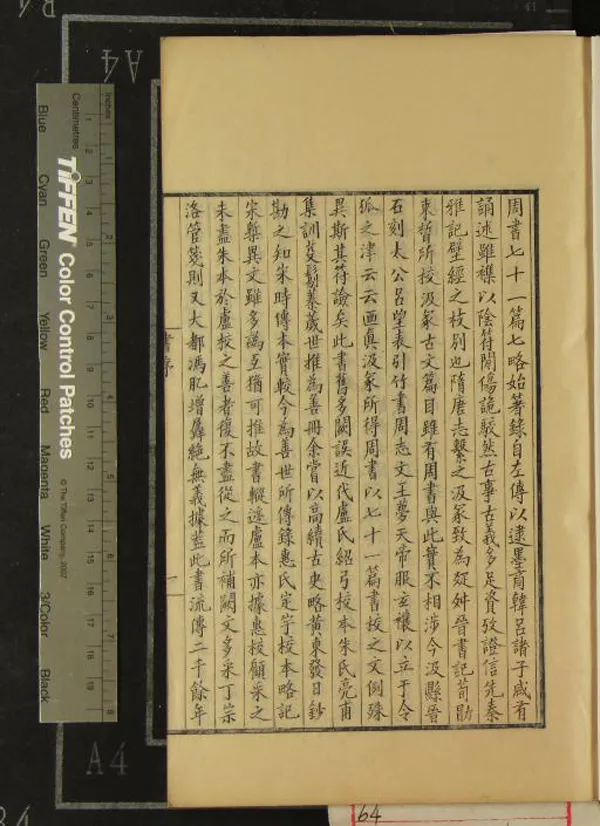 周書七十一篇七略始箸錄自左傳以逮墨商韓呂諸子咸有
誦述雖襍以陰符閒傷詭駮然古事古義多足資攷證信先秦
雅記壁經之枝別也隋唐志繫之汲冢致為疑舛晉書記荀勖
束晳所校汲冢古文篇目雖有周書與此實不相涉今汲縣晉
石刻太公呂望表引竹書周志文王夢天帝服玄禳以立于令
狐之津云云廼真汲冢所得周書以七十一篇書校之文例殊
異斯其符譣矣此書舊多闕誤近代盧氏紹弓校本朱氏亮甫
集訓芟鬄蓁薉世推為善冊余嘗以高續古史略黃東發日鈔
勘之知宋時傳本實較今為善世所傳錄惠氏定宇校本略記
宋槧異文雖多譌互猶可推故書輒迹盧本亦據惠校顧采之
未盡朱本於盧校之善者復不盡從之而所補闕文多采丁宗
洛管箋則又大都馮肊增羼絕無義據蓋此書流傳二千餘年
書序
一
Inches
Centimetres
1 2 3 4 5 6 7 8 9 10 11 12 13 14 15 16 17 18 19
TIFFEN Color Control Patches
© The Tiffen Company, 2007
Blue Cyan Green Yellow Red Magenta White 3/Color Black
A4
A4
64